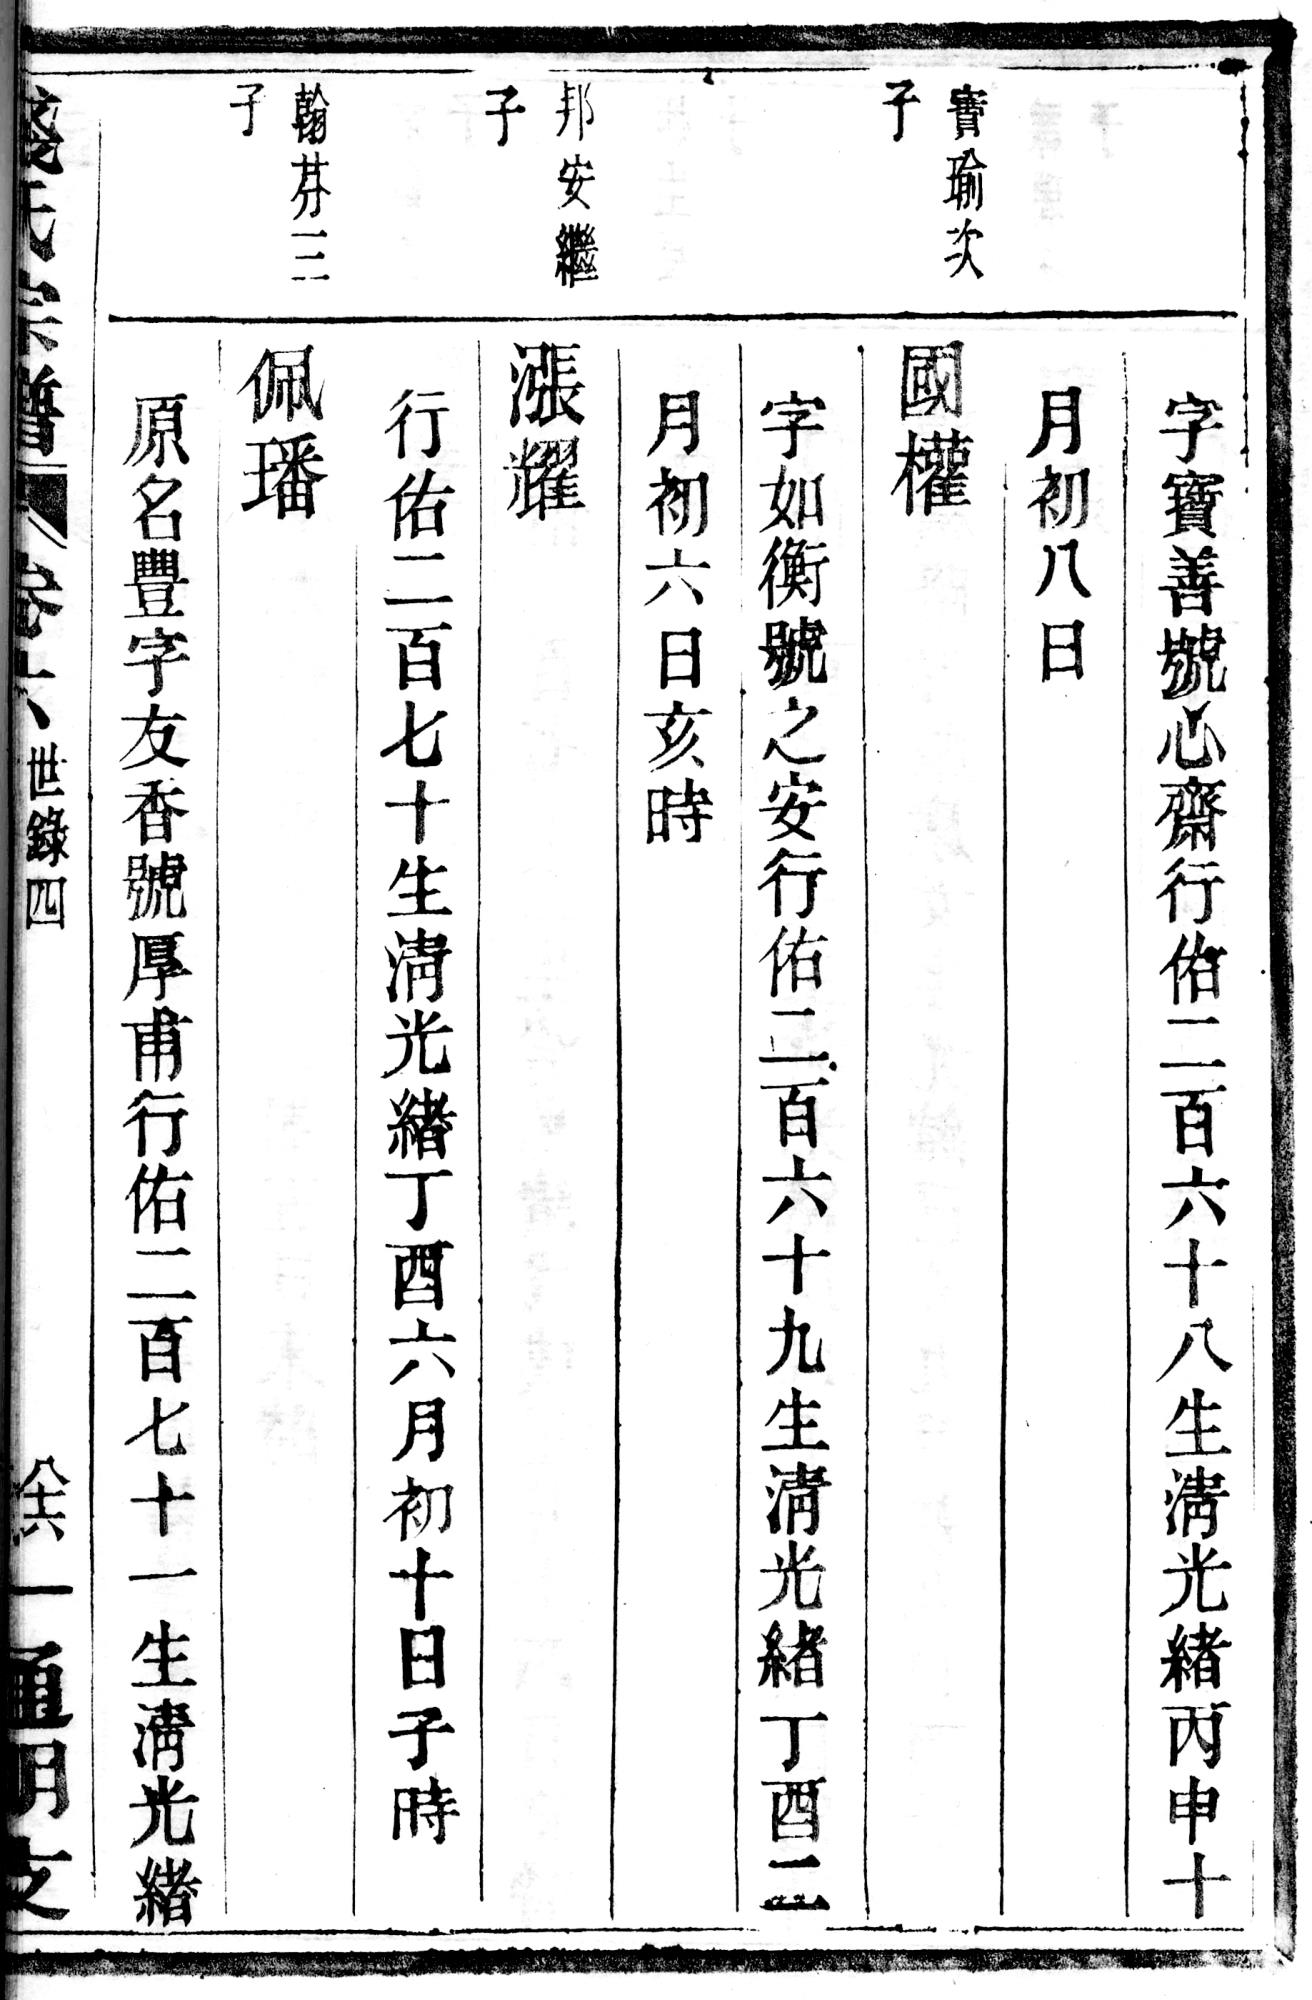 字寶善號心齋行佑二百六十八生淸光緖丙申十
月初八日
寶瑜次
子
國權
字如衡號之安行佑二百六十九生淸光緖丁酉二
月初六日亥時
邦安繼
子
漲耀
行佑二百七十生淸光緖丁酉六月初十日子時
翰芬三
子
佩璠
原名豐字友香號厚甫行佑二百七十一生淸光緖
氏宗譜 卷六 世錄四 八十六 一